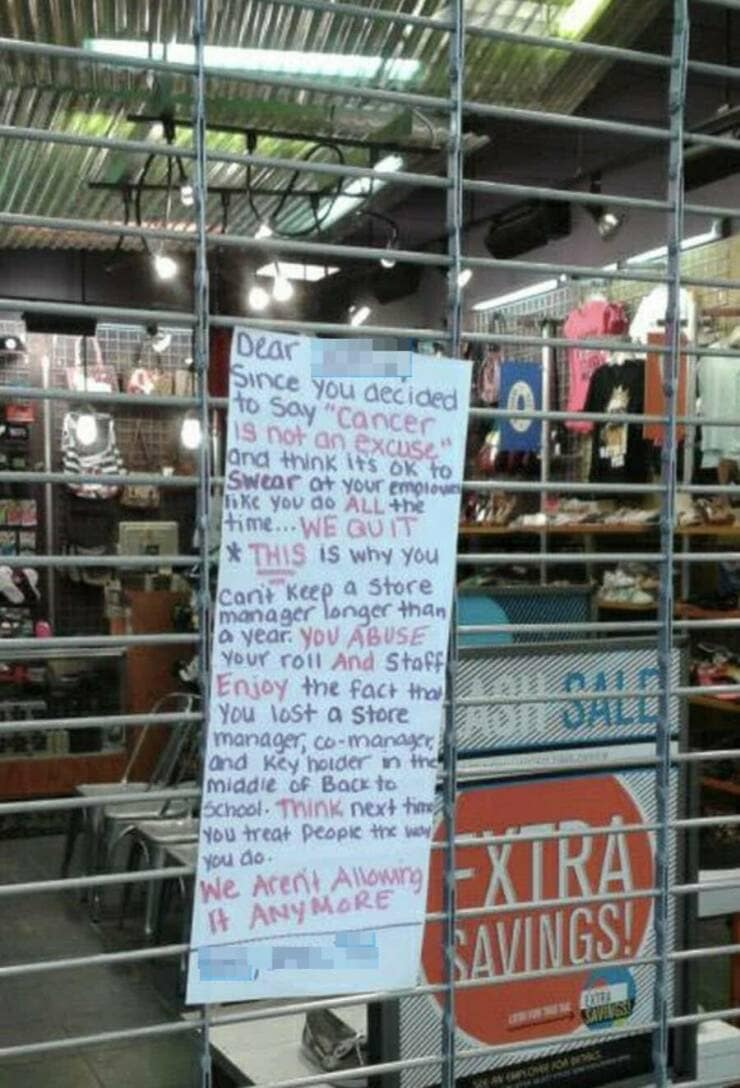 Dear
Since you decided
to say "Cancer
is not an excuse"
and think it's ok to
Swear at your
like you do ALL the
time... WE QUIT
* THIS is why you
can't keep a store
manager longer than
a year. YOU ABUSE
your roll And Staff
Enjoy the fact that
you lost a store
manager, co-manager,
and key holder in the
middle of Back to
School. Think next time
you treat people the way
you do.
We Aren't Allowing
it ANYMORE
SALE
EXTRA
SAVINGS!
EXTRA
SAVINGS!